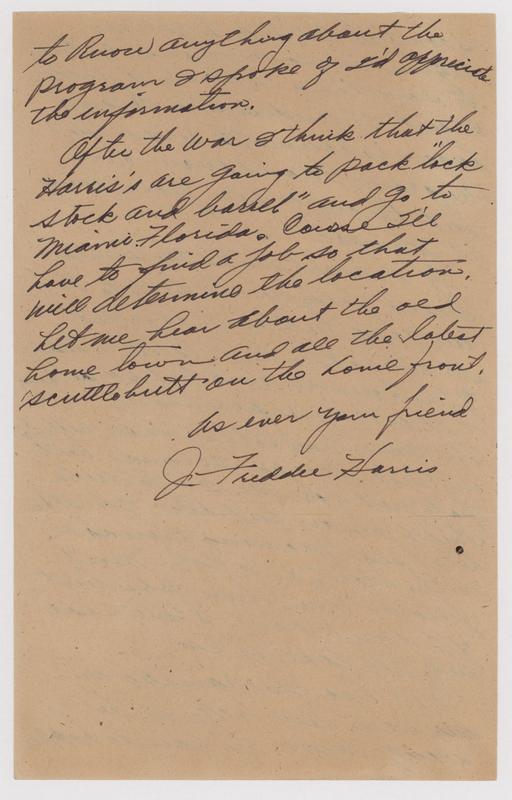 to know anything about the
program I spoke of I'd appreciate
the information.
After the war I think that the
Harris's are going to pack "lock
stock and barell" and go to
Miami Florida. Course I'll
have to find a job so that
will determine the location.
Let me hear about the old
home town and all the latest
"scuttlebutt" on the home front.
As ever your friend
J. Freddie Harris